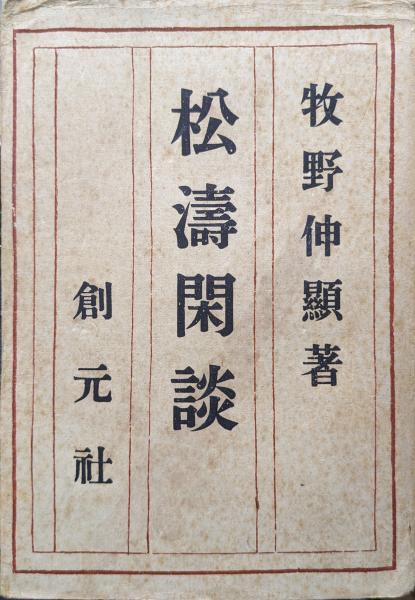 牧野伸顯著
松濤閑談
創元社